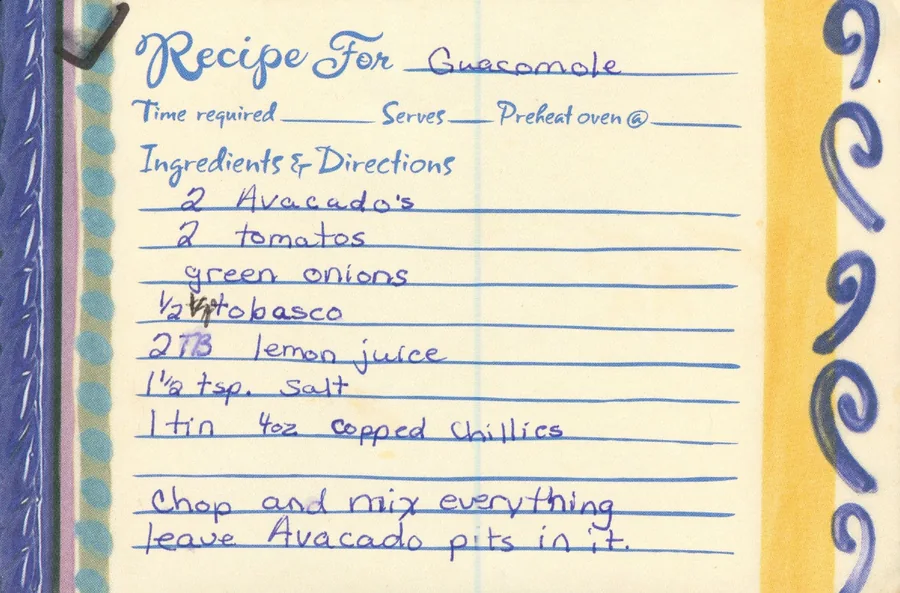 Recipe For Guacomole
Time required Serves Preheat oven @
Ingredients & Directions
2 Avacado's
2 tomatos
green onions
1/2 tobasco
2 TB lemon juice
1 1/2 tsp. salt
1 tin 4oz copped chillies
Chop and mix everything
leave Avacado pits in it.